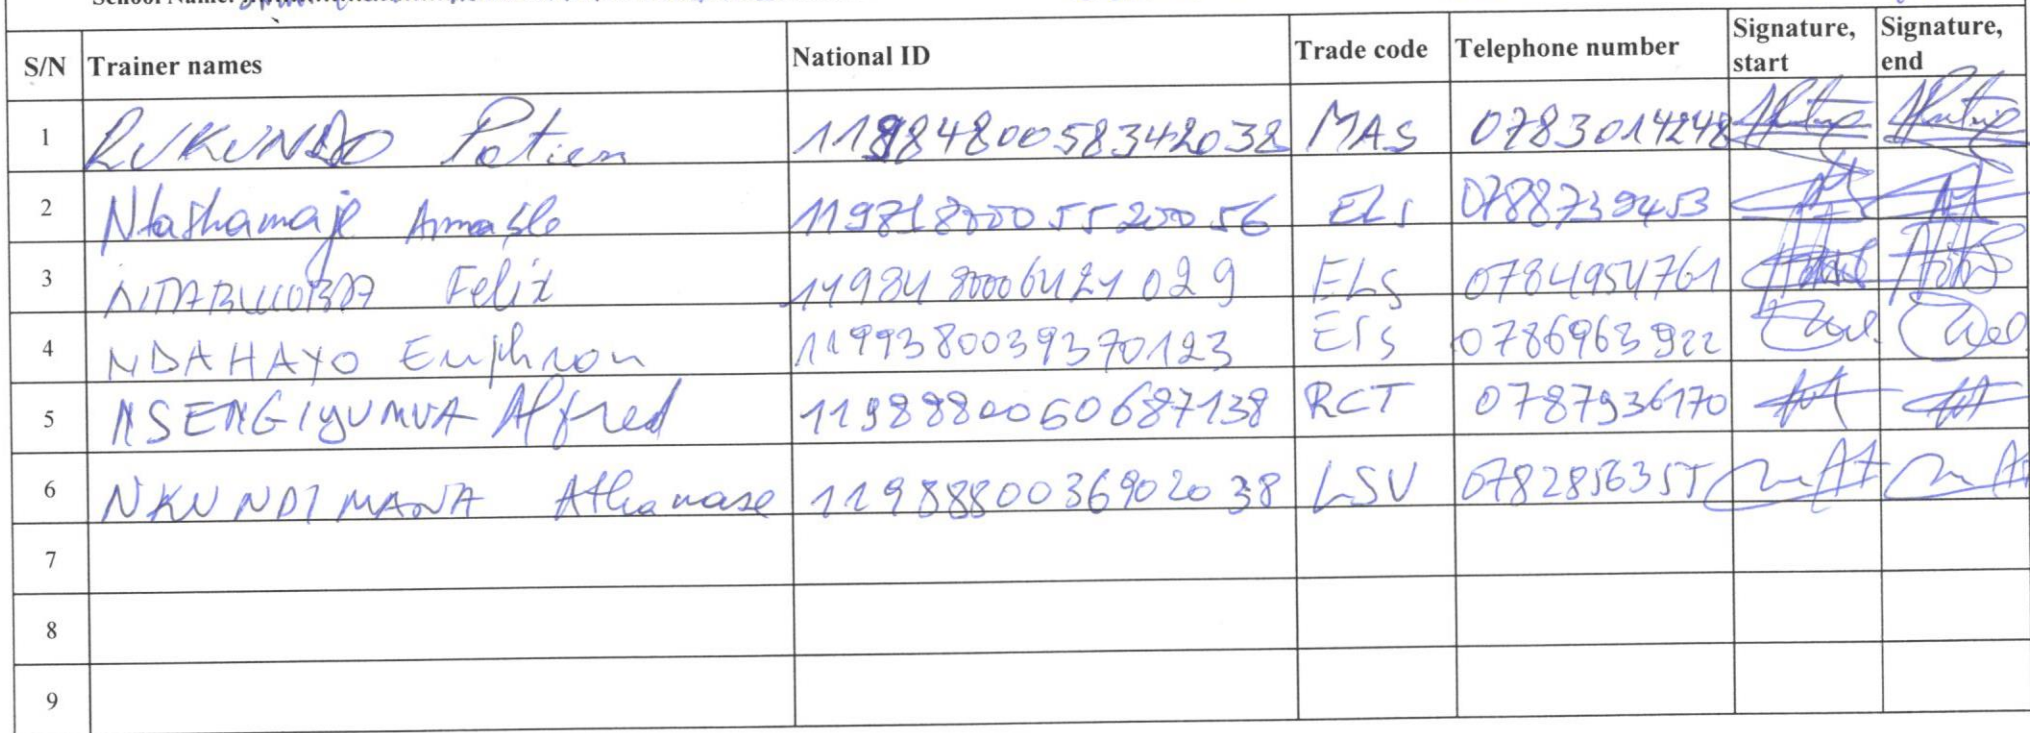 School Name:
S/N Trainer names National ID Trade code Telephone number Signature, start Signature, end
1 RUKUNDO Potien 1198480058342038 MAS 0783014248
2 Ntashamaje Amable 1198180005520056 ELS 0788739453
3 Felix 1198480006421029 ELS 0784954761
4 NDAHAYO Euphron 1199380039370123 ElS 0786963922
5 NSENGIYUMVA Alfred 1198880060687138 RCT 0787936170
6 NKUNDIMANA Athanase 1198880036902038 LSV 0782856355
7
8
9